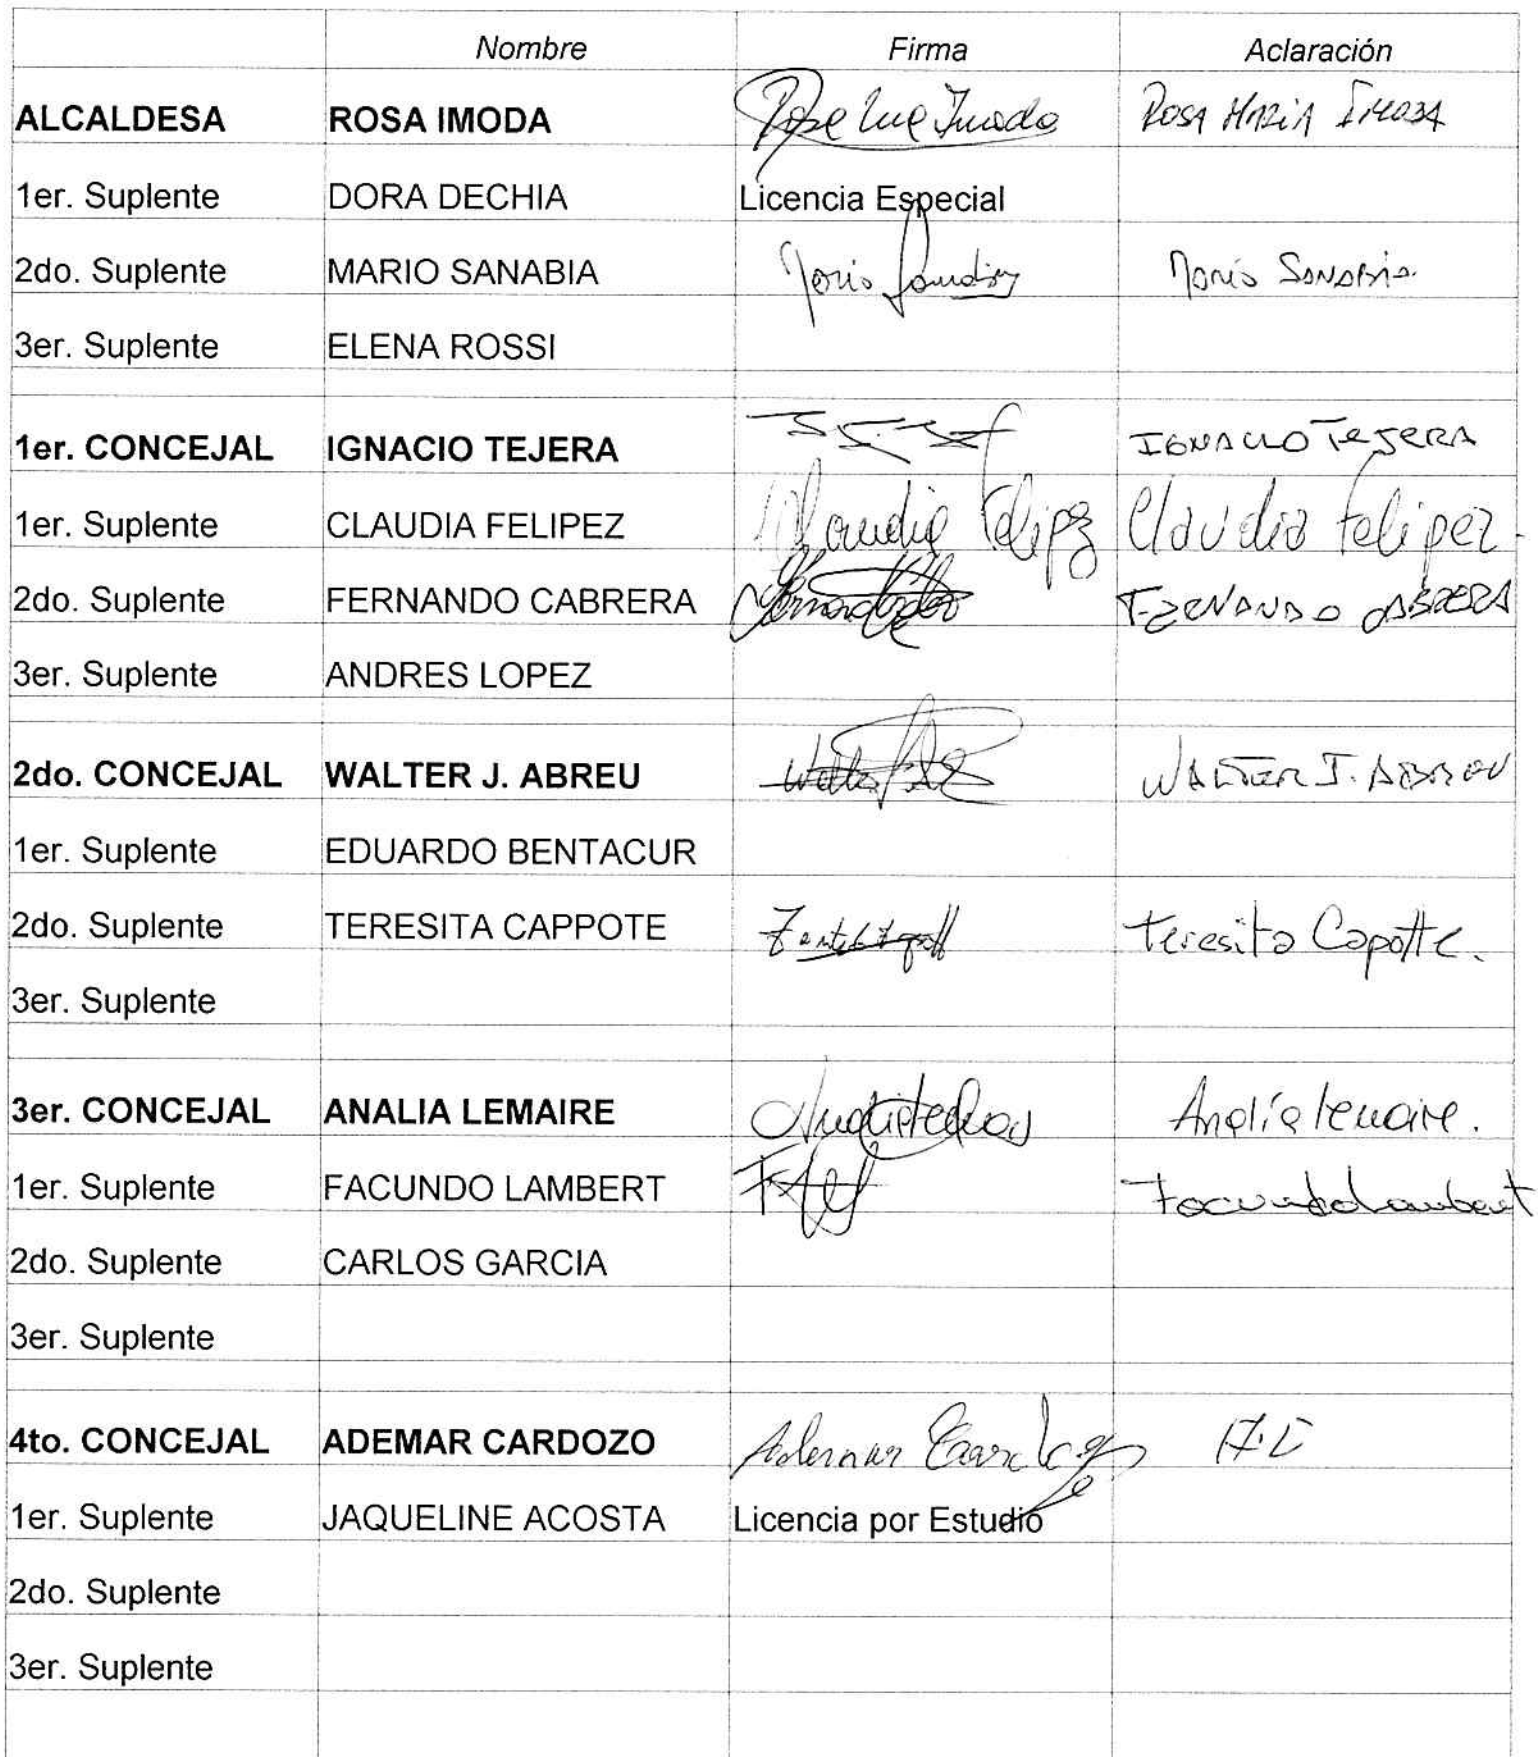 Nombre Firma Aclaración
ALCALDESA ROSA IMODA ROSA MARIA IMODA
1er. Suplente DORA DECHIA Licencia Especial
2do. Suplente MARIO SANABIA Mario Sanabia.
3er. Suplente ELENA ROSSI
1er. CONCEJAL IGNACIO TEJERA IGNACIO TEJERA
1er. Suplente CLAUDIA FELIPEZ Claudia Felipez Claudia Felipez.
2do. Suplente FERNANDO CABRERA FERNANDO CABRERA
3er. Suplente ANDRES LOPEZ
2do. CONCEJAL WALTER J. ABREU WALTER J. ABREU
1er. Suplente EDUARDO BENTACUR
2do. Suplente TERESITA CAPPOTE Teresita Capotte.
3er. Suplente
3er. CONCEJAL ANALIA LEMAIRE Analía Lemaire.
1er. Suplente FACUNDO LAMBERT Facundo Lambert
2do. Suplente CARLOS GARCIA
3er. Suplente
4to. CONCEJAL ADEMAR CARDOZO Ademar Cardozo
1er. Suplente JAQUELINE ACOSTA Licencia por Estudio
2do. Suplente
3er. Suplente